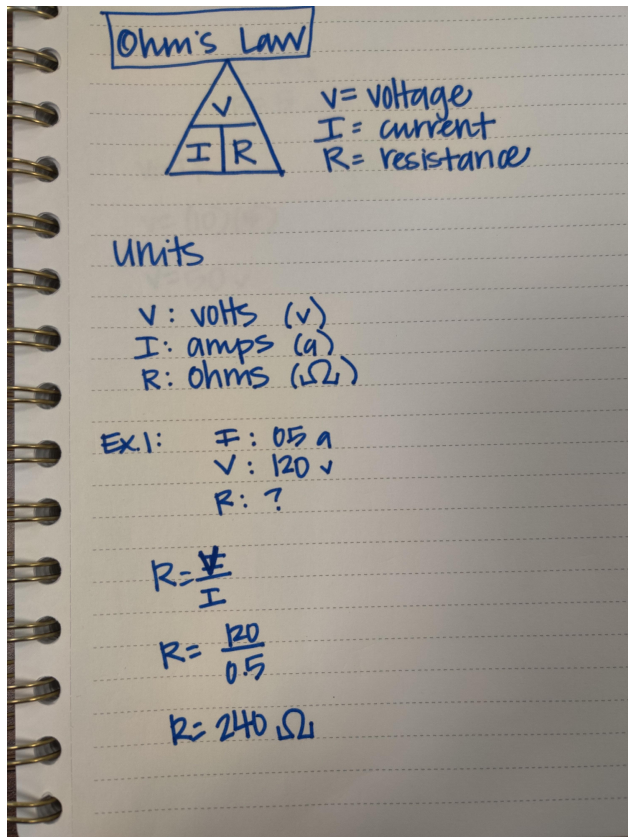 Ohm's Law
V
I R
V = voltage
I = current
R = resistance
Units
V : volts (v)
I : amps (a)
R : ohms (Ω)
Ex.1: I : 05 a
V : 120 v
R : ?
R = V
I
R = 120
0.5
R = 240 Ω